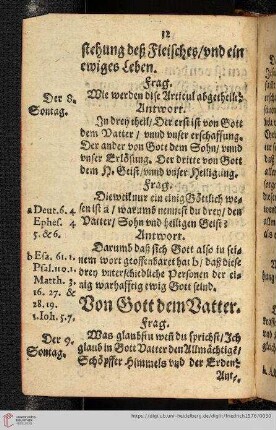 12
stehung deß Fleisches/ vnd ein
ewiges Leben.
Frag.
Der 8. Sontag.
Wie werden dise Articul abgetheilt?
Antwort.
In drey theil/ Der erst ist von Gott
dem Vatter/ vnnd vnser erschaffung.
Der ander von Gott dem Sohn/ vnnd
vnser Erlösung. Der dritte von Gott
dem H. Geist/ vnnd vnser Heiligung.
Frag.
Dieweil nur ein einig Göttlich we-
a Deut. 6. 4
Ephes. 4
5. & 6.
sen ist a/ warumb nennest du drey/ den
Vatter/ Sohn vnd heiligen Geist?
Antwort.
Darumb daß sich Gott also in sei-
b Esa. 61. 1.
Psal. 110. 1.
Matth. 3.
16. 27. &
28. 19.
1. Ioh. 5. 7.
nem wort geoffenbaret hat b/ daß diese
drey vnterschiedliche Personen der ei-
nig warhafftig ewig Gott seind.
Von Gott dem Vatter.
Frag.
Der 9. Sontag.
Was glaubstu weñ du sprichst/ Ich
glaub in Gott Vatter den Allmächtigē/
Schöpffer Himmels vnd der Erden?
Ant-